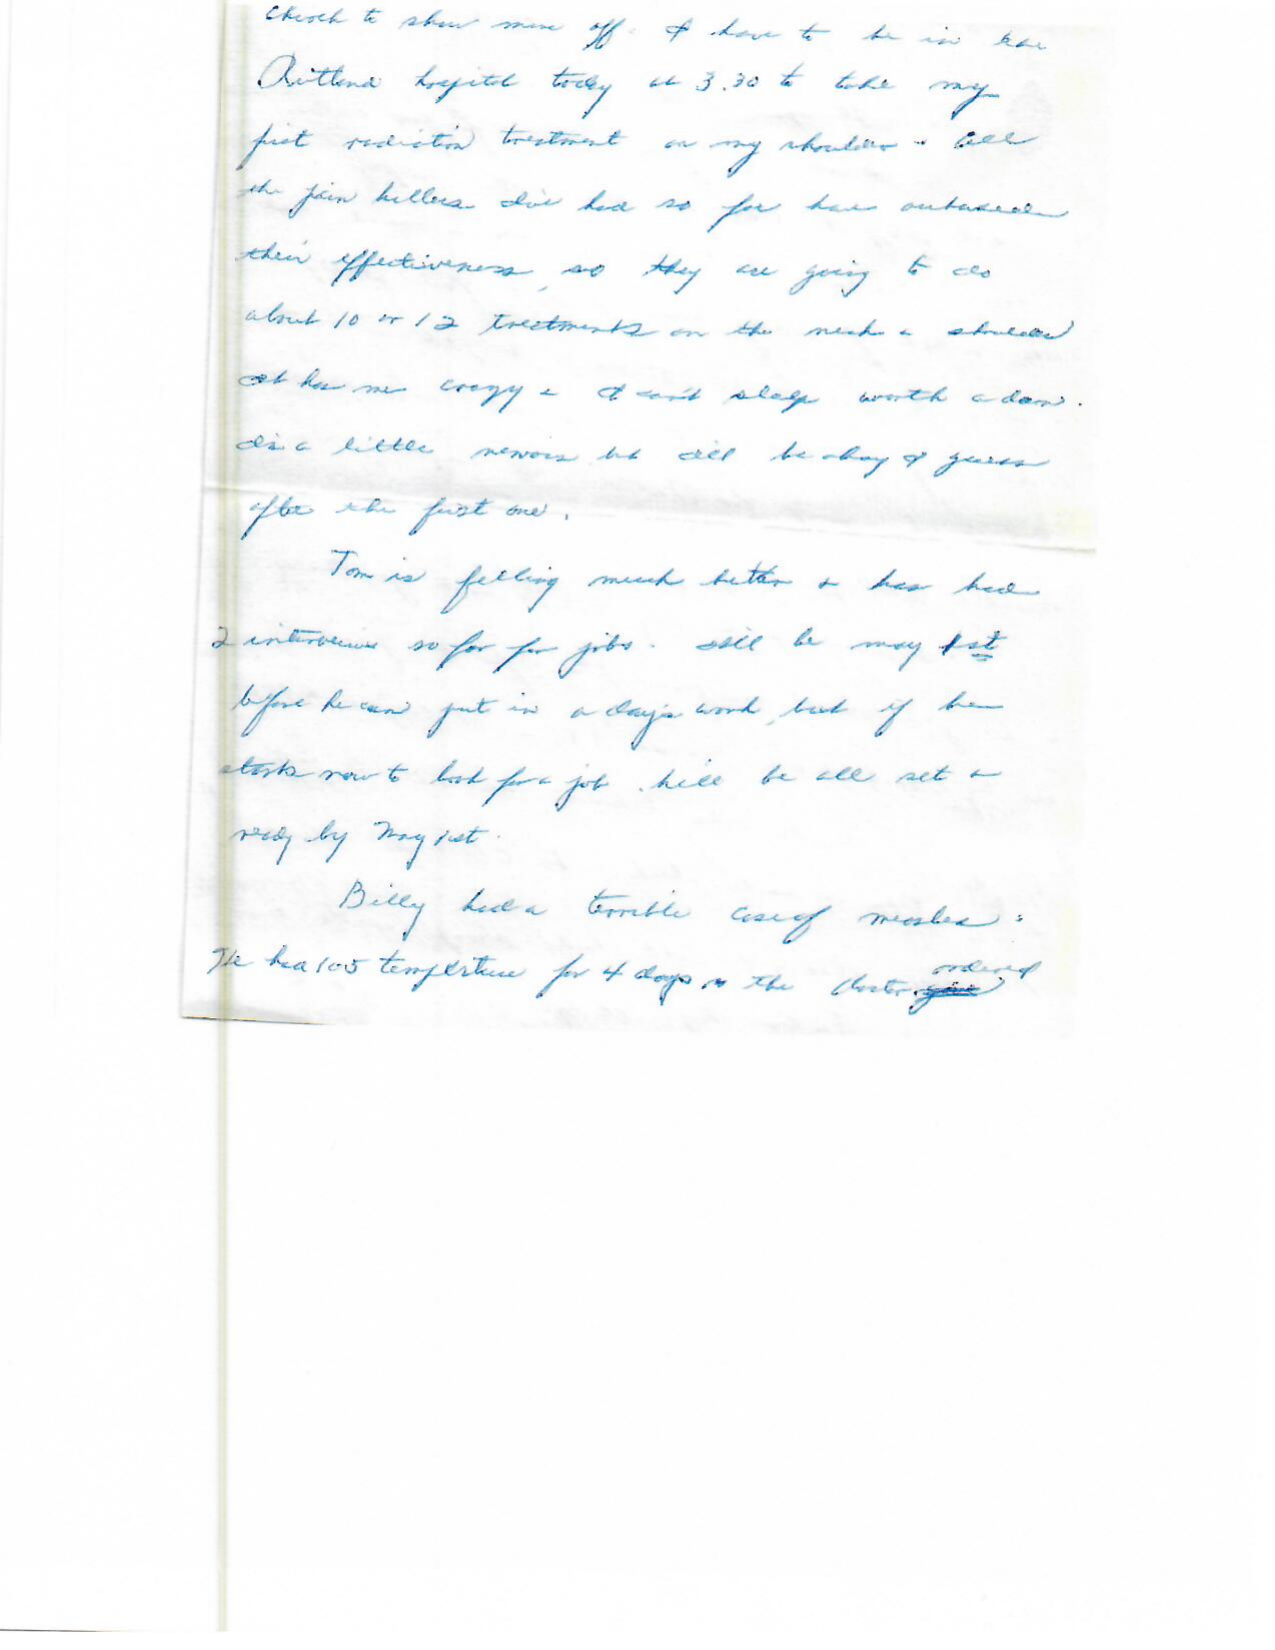 church to show mine off. I have to be in the
Rutland hospital today at 3.30 to take my
first radiation treatment on my shoulder. All
the pain killers I've had so far have
their effectiveness, so they are going to do
about 10 or 12 treatments on the neck & shoulder
It has me crazy & I can't sleep worth a dam.
I'm a little nervous but I'll be okay I guess
after the first one.
Tom is feeling much better & has had
2 interviews so far for jobs. It'll be may 1st
before he can put in a day's work, but if he
starts now to look for a job, he'll be all set &
ready by May 1st.
Billy had a terrible case of measles.
He had 105 temperture for 4 days & the doctor ordered